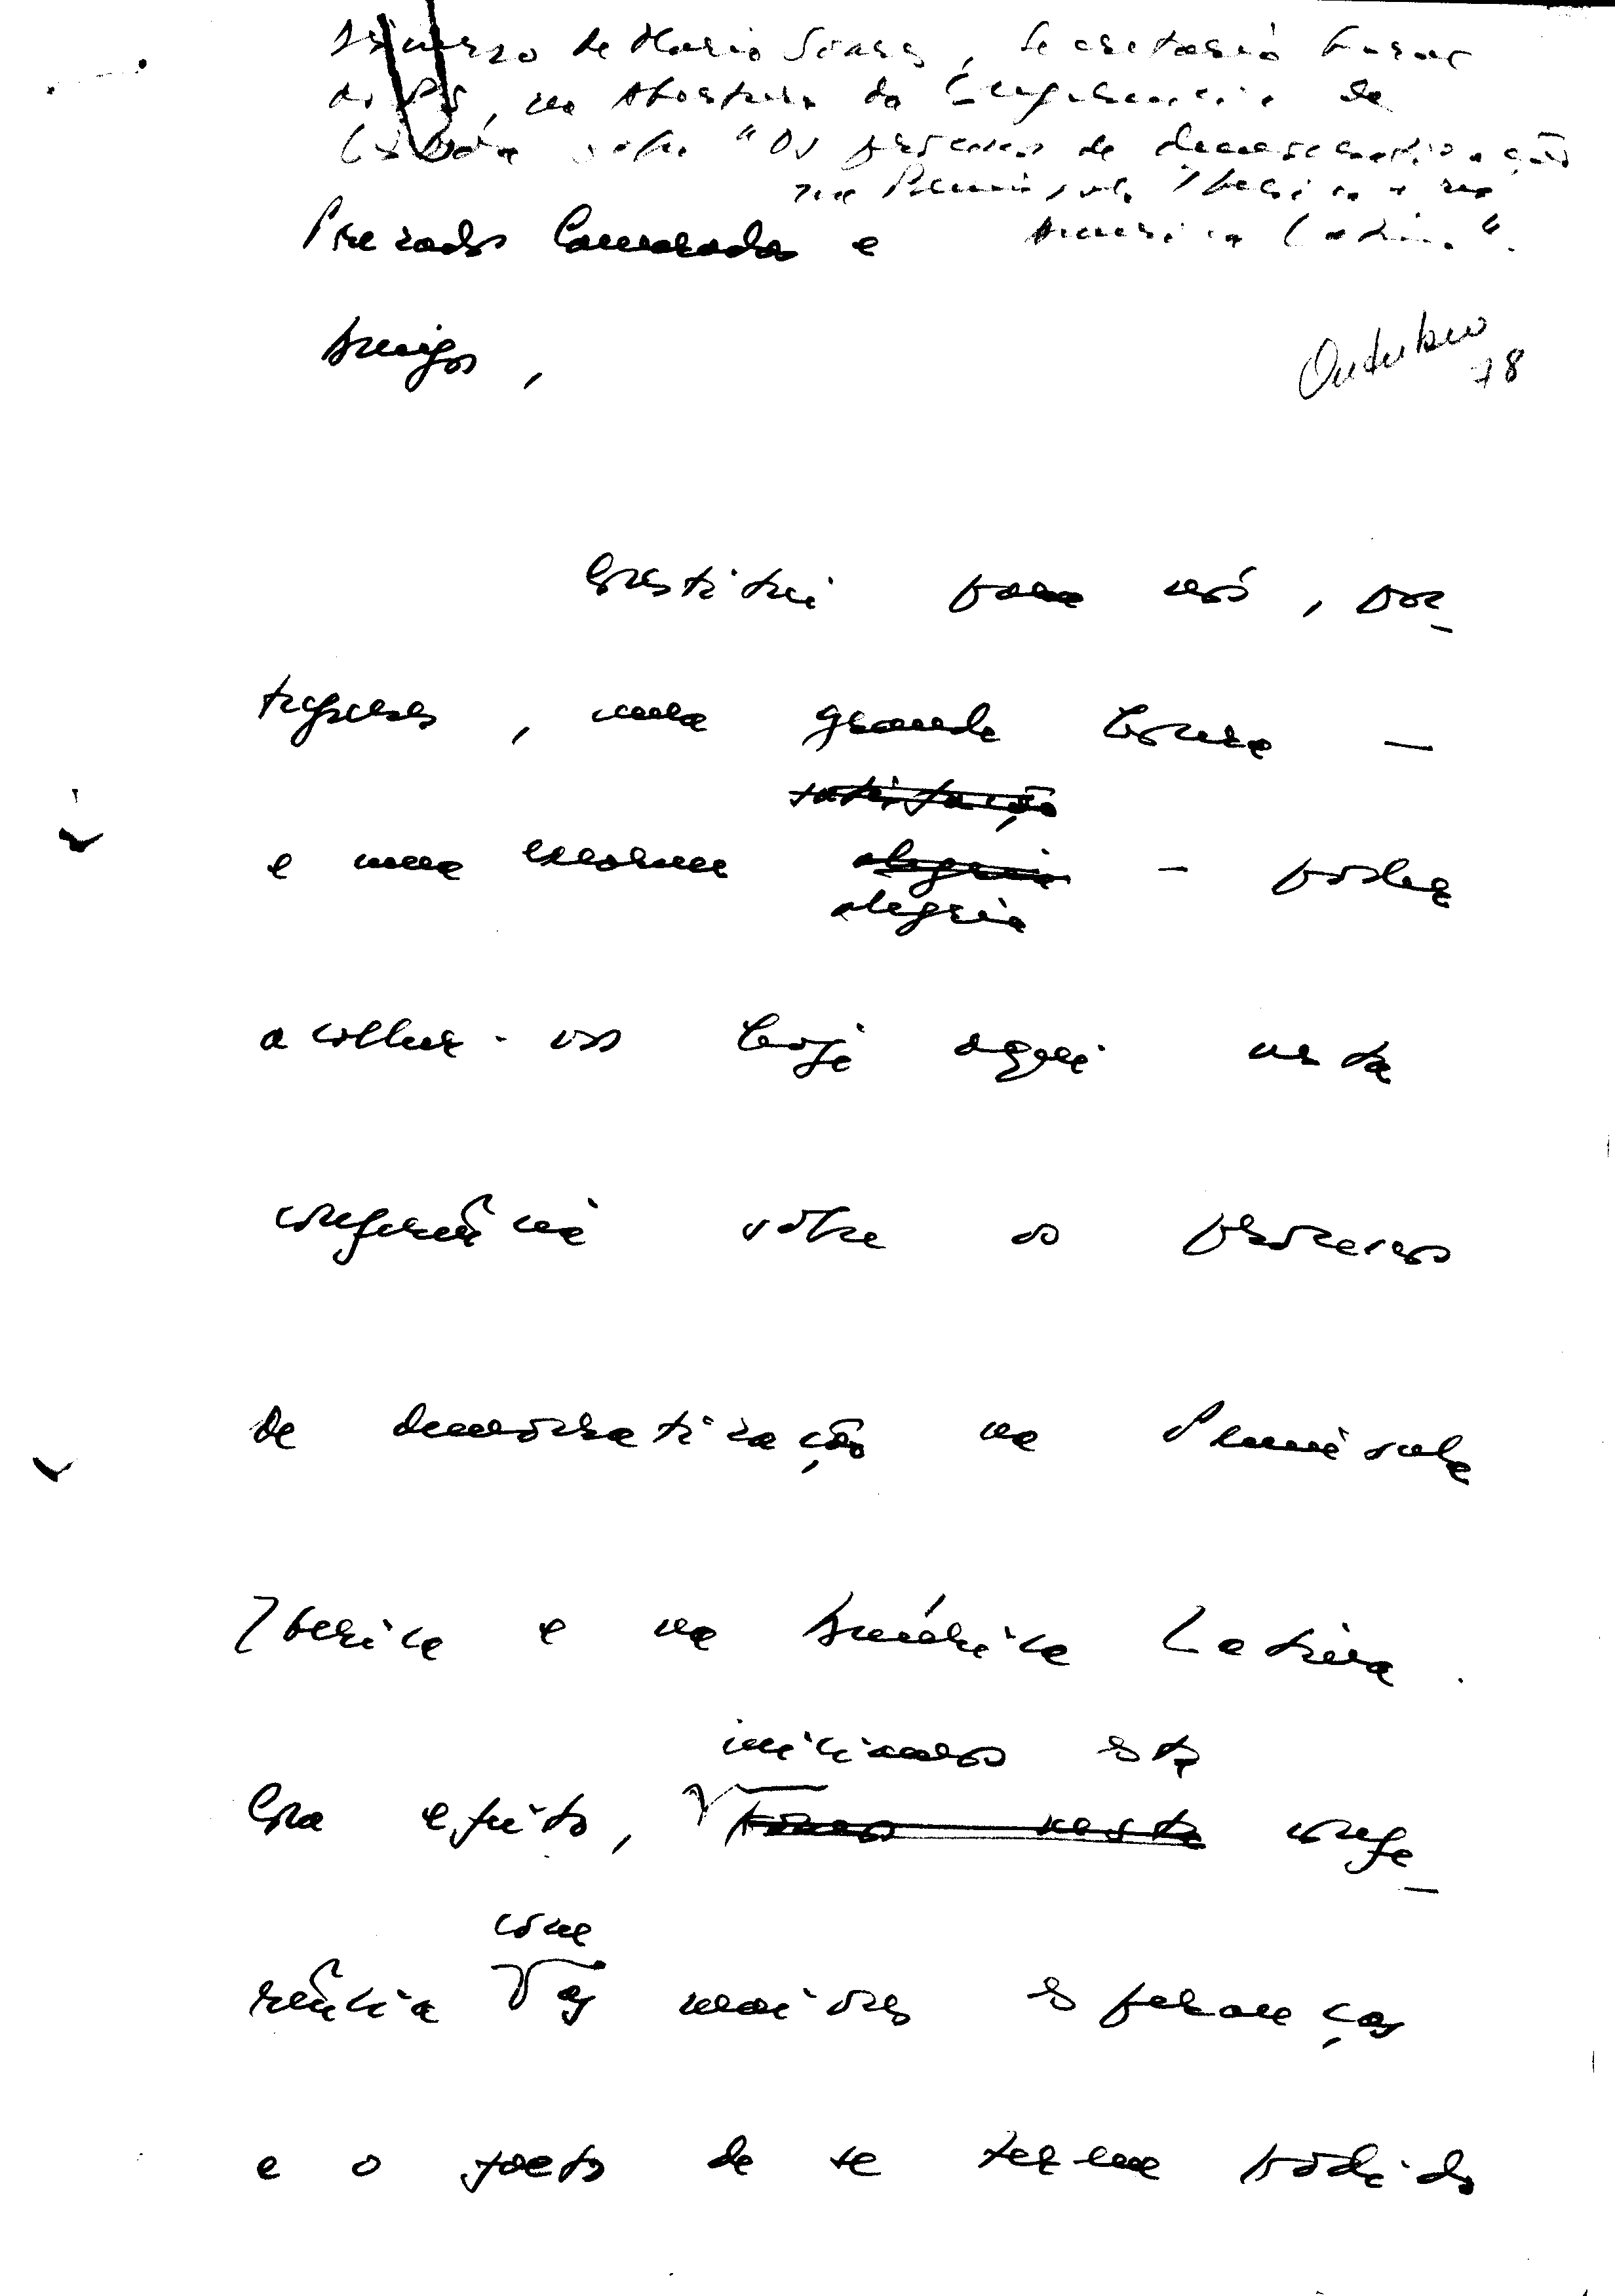 Discurso de Mario Soares, Secretario Geral
do PS, na Abertura da Conferencia de
Lisboa sobre "Os processos de democratização
na Peninsula Iberica e na
America Latina".
Prezados Camaradas e
Amigos,
Outubro
78
Constitui para nós, por-
tugueses, uma grande honra -
satisfação
e uma enorme alegria - poder
alegria
acolher-vos hoje aqui nesta
conferência sobre os processos
de democratização na Peninsula
Iberica e na América Latina.
iniciamos esta
Com efeito, temos nesta confe-
com
rência as maiores esperanças
e o facto de se terem podido